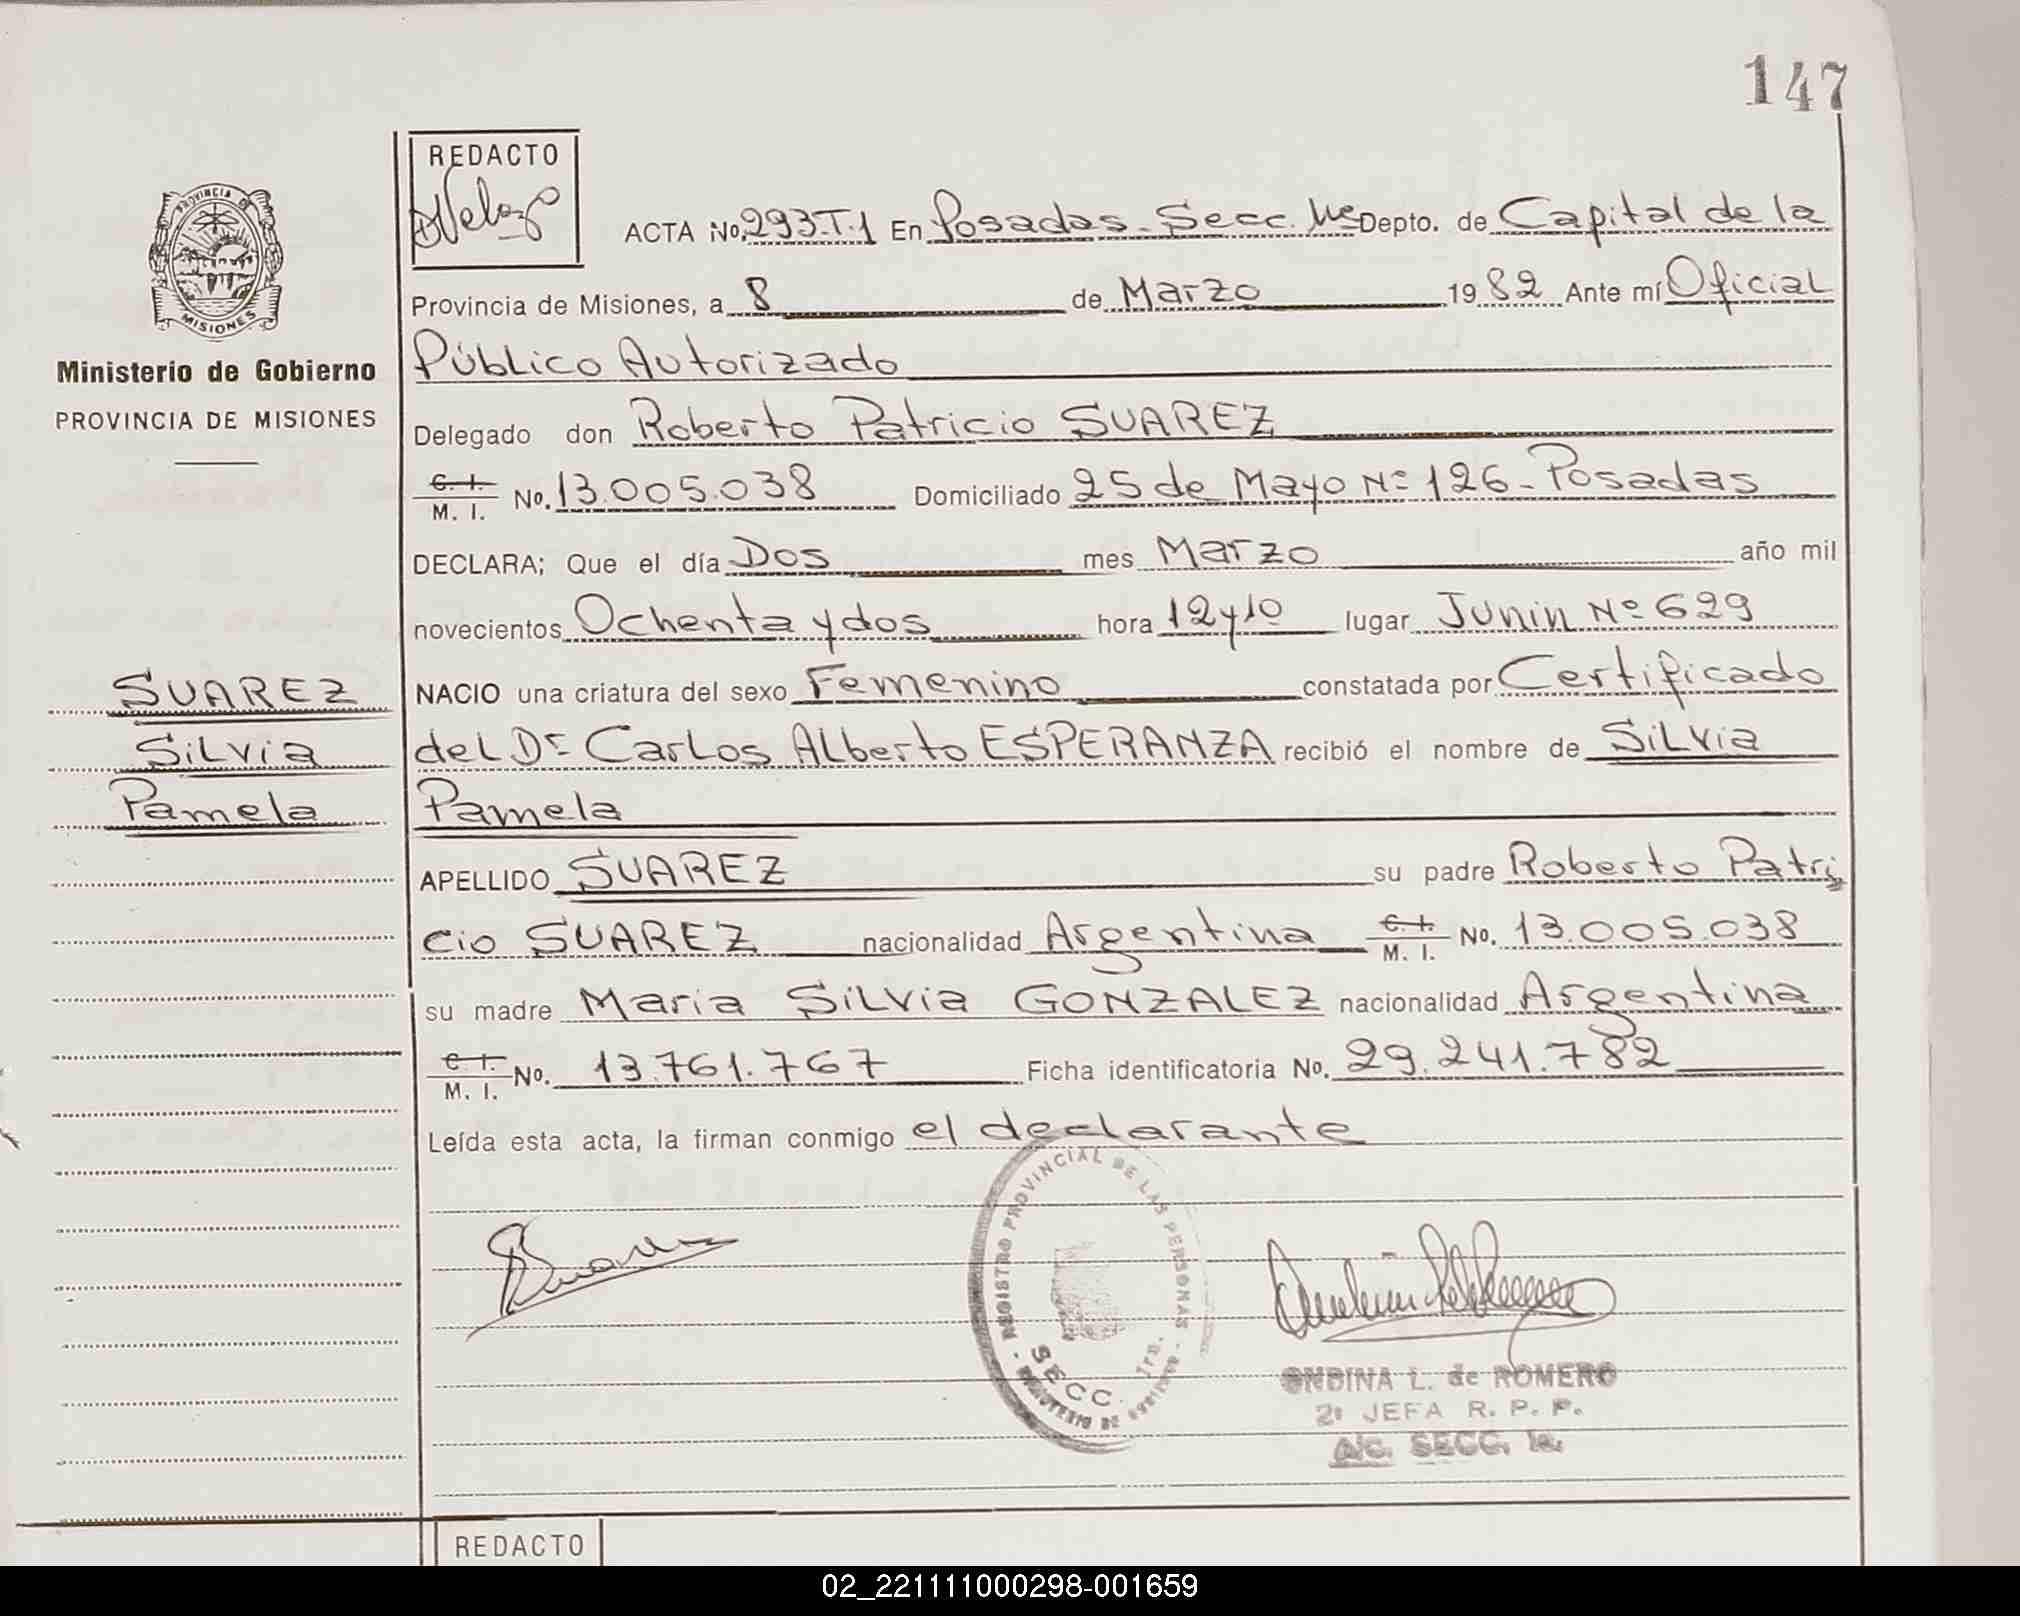 147
REDACTO
PROVINCIA DE
MISIONES
Ministerio de Gobierno
PROVINCIA DE MISIONES
ACTA No. 293-T.1 En Posadas - Secc. 1ª Depto. de Capital de la
Provincia de Misiones, a 8 de Marzo 1982 Ante mí Oficial
Público Autorizado
Delegado don Roberto Patricio SUAREZ
C. I. / M. I. No. 13.005.038 Domiciliado 25 de Mayo Nº 126 - Posadas
DECLARA; Que el día Dos mes Marzo año mil
novecientos Ochenta y dos hora 12 y 10 lugar Junin Nº 629
NACIO una criatura del sexo Femenino constatada por Certificado
del Dr Carlos Alberto ESPERANZA recibió el nombre de Silvia
Pamela
SUAREZ
Silvia
Pamela
APELLIDO SUAREZ su padre Roberto Patri
cio SUAREZ nacionalidad Argentina C. I. / M. I. No. 13.005.038
su madre Maria Silvia GONZALEZ nacionalidad Argentina
C. I. / M. I. No. 13.761.767 Ficha identificatoria No. 29.241.782
Leída esta acta, la firman conmigo el declarante
REGISTRO PROVINCIAL DE LAS PERSONAS
SECC. 1ra.
MINISTERIO DE GOBIERNO
ONDINA L. de ROMERO
2ª JEFA R. P. P.
A/c. SECC. 1a.
REDACTO
02_221111000298-001659